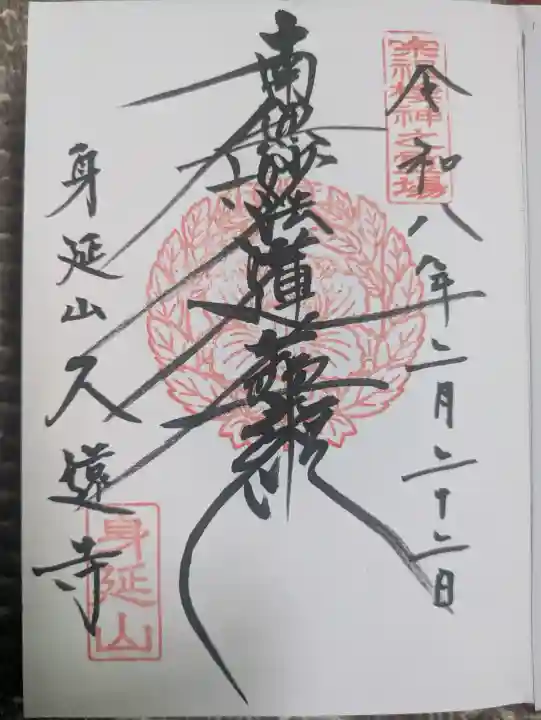 宗祖棲神之霊場
令和八年二月二十二日
南無妙法蓮華經
身延山久遠寺
身延山